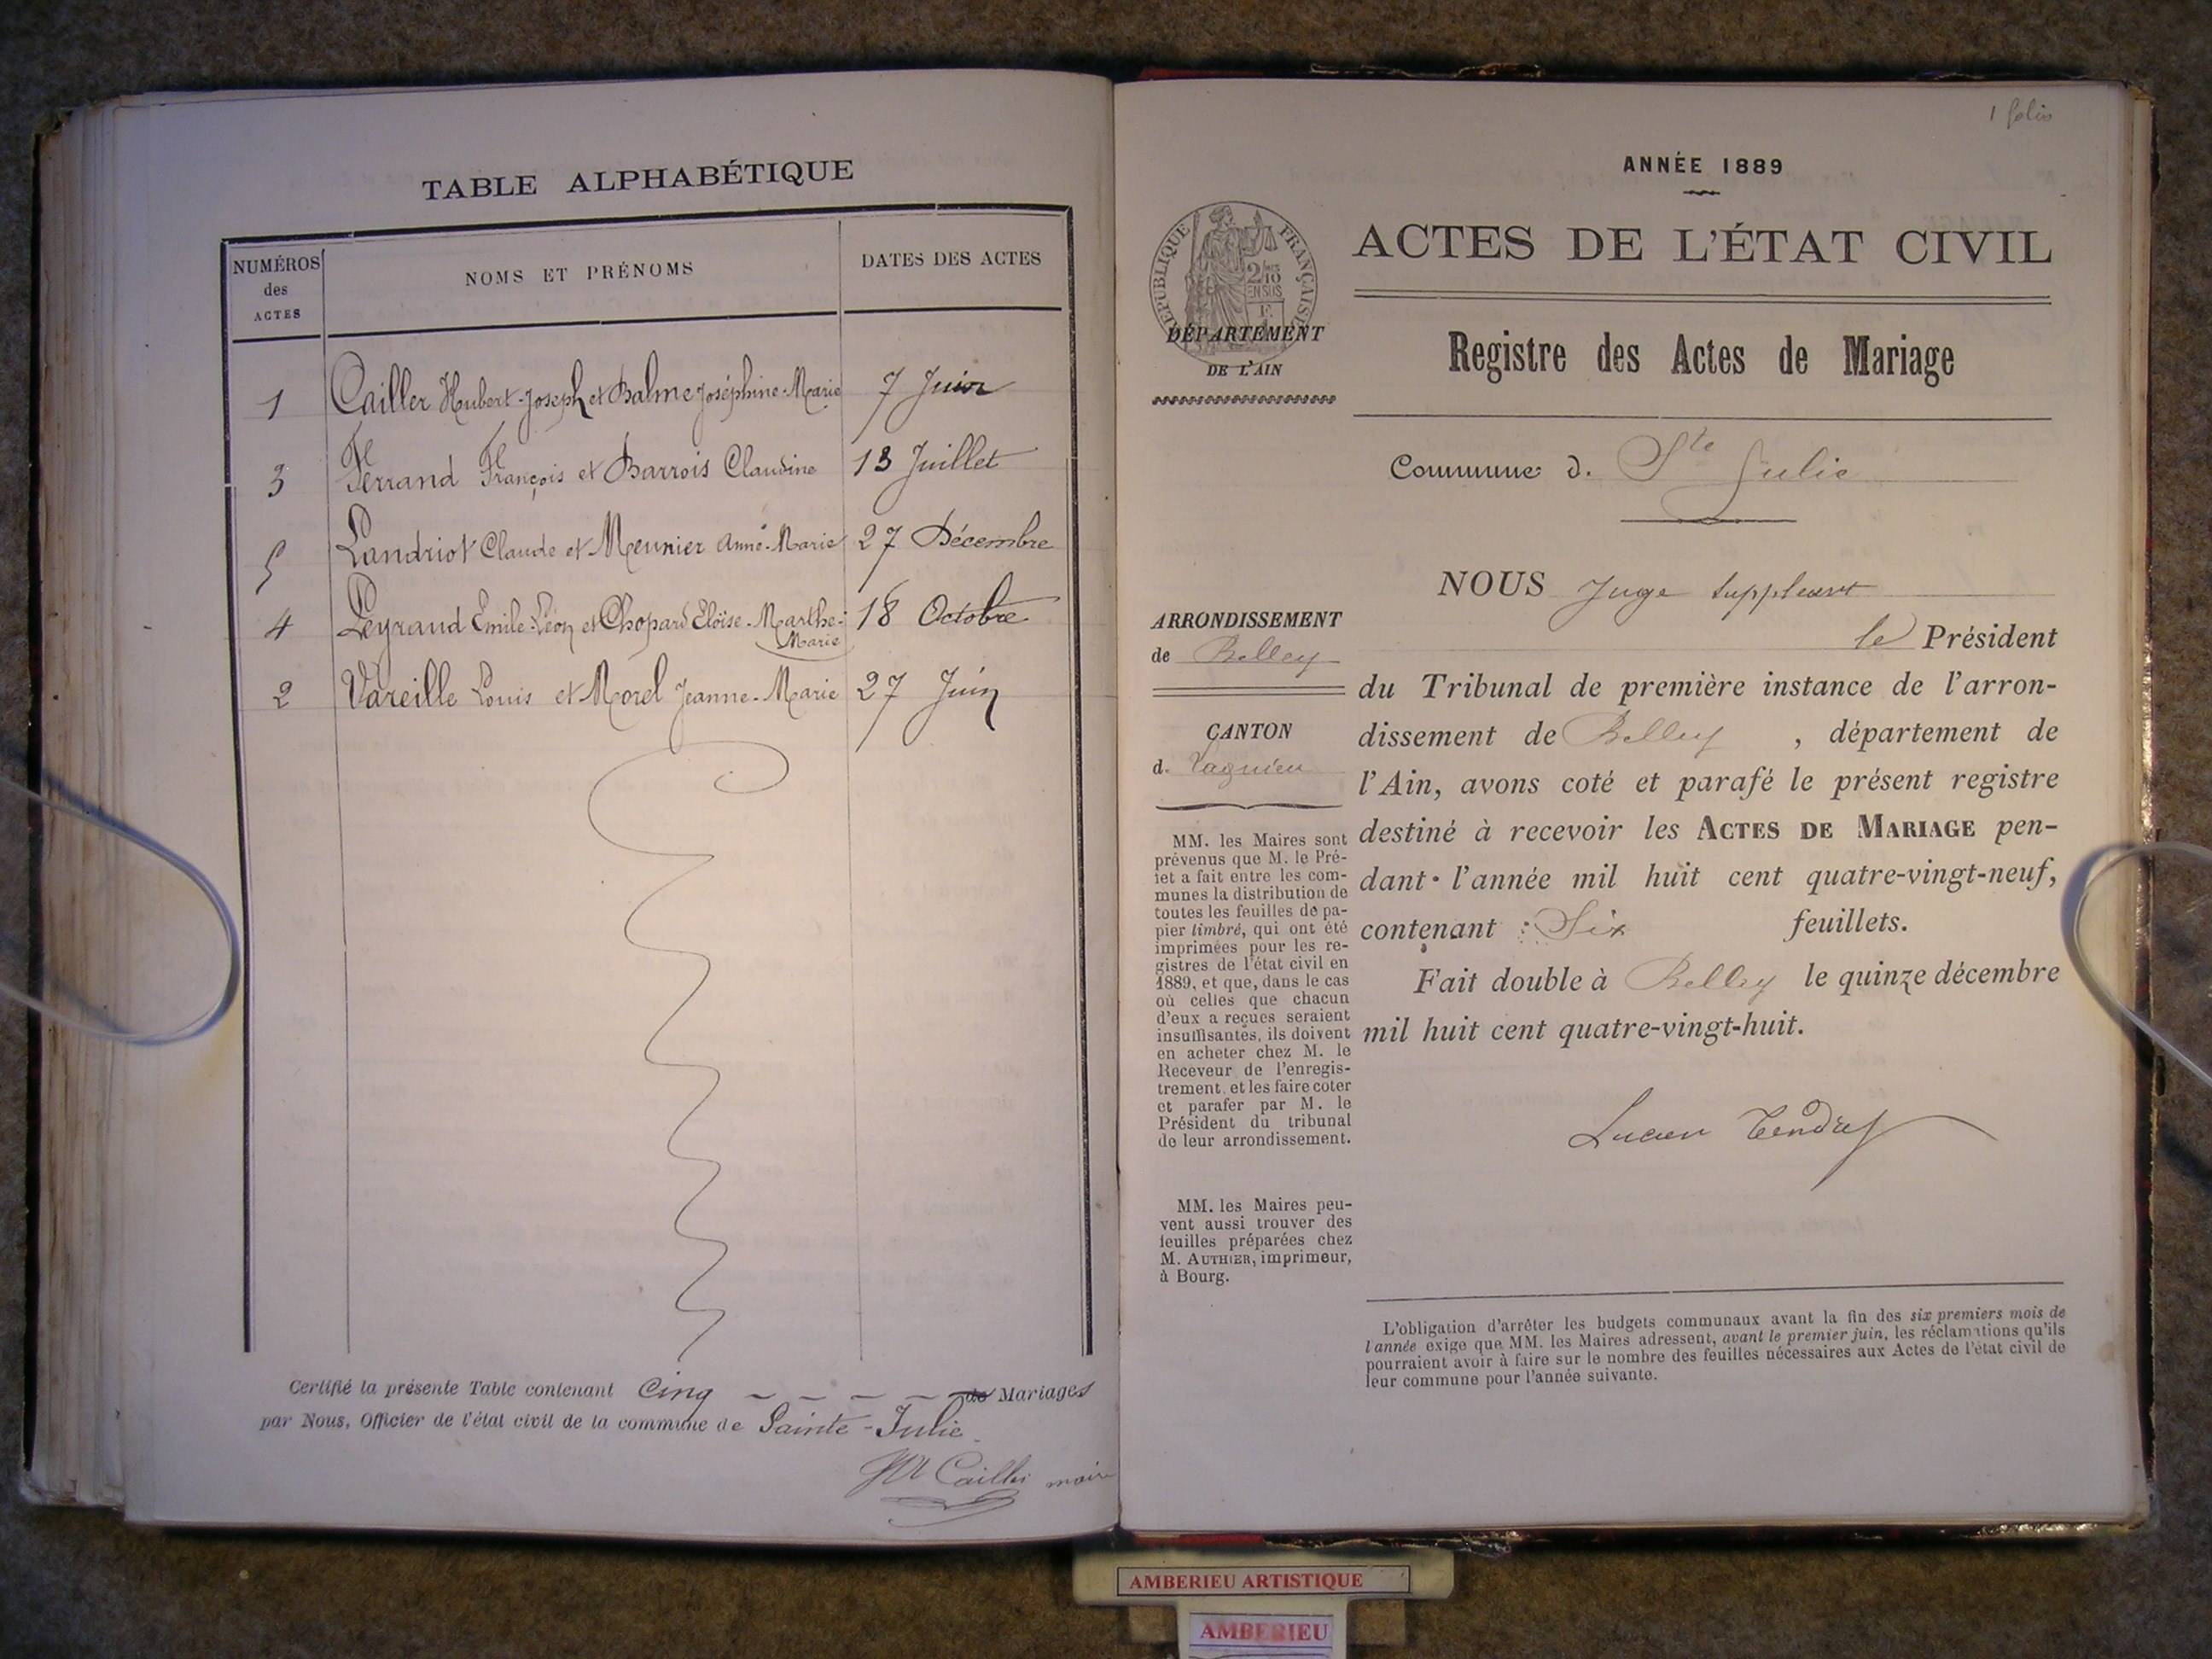 TABLE ALPHABÉTIQUE
NUMÉROS
des
ACTES
NOMS ET PRÉNOMS
DATES DES ACTES
1 Cailler Hubert-Joseph et Balme Joséphine-Marie 7 Juin
3 Ferrand François et Barrois Claudine 13 Juillet
5 Landriot Claude et Meunier Anne-Marie 27 Décembre
4 Leyraud Emile-Léon et Chopard Eloïse-Marthe- 18 Octobre
Marie
2 Vareille Louis et Morel Jeanne-Marie 27 Juin
Certifié la présente Table contenant Cinq de Mariages
par Nous, Officier de l'état civil de la commune de Sainte-Julie
Cailler maire
1 folio
ANNÉE 1889
ACTES DE L'ÉTAT CIVIL
RÉPUBLIQUE FRANÇAISE
2/10
EN SUS
DÉPARTEMENT
DE L'AIN
Registre des Actes de Mariage
Commune d. Ste Julie
NOUS Juge suppléant
le Président
ARRONDISSEMENT
de Belley
CANTON
d. Lagnieu
du Tribunal de première instance de l'arron-
dissement de Belley , département de
l'Ain, avons coté et parafé le présent registre
destiné à recevoir les ACTES DE MARIAGE pen-
dant l'année mil huit cent quatre-vingt-neuf,
contenant : Six feuillets.
Fait double à Belley le quinze décembre
mil huit cent quatre-vingt-huit.
Lucien Tendret
MM. les Maires sont
prévenus que M. le Pré-
fet a fait entre les com-
munes la distribution de
toutes les feuilles de pa-
pier timbré, qui ont été
imprimées pour les re-
gistres de l'état civil en
1889, et que, dans le cas
où celles que chacun
d'eux a reçues seraient
insuffisantes, ils doivent
en acheter chez M. le
Receveur de l'enregis-
trement, et les faire coter
et parafer par M. le
Président du tribunal
de leur arrondissement.
MM. les Maires peu-
vent aussi trouver des
feuilles préparées chez
M. AUTHIER, imprimeur,
à Bourg.
L'obligation d'arrêter les budgets communaux avant la fin des six premiers mois de
l'année exige que MM. les Maires adressent, avant le premier juin, les réclamations qu'ils
pourraient avoir à faire sur le nombre des feuilles nécessaires aux Actes de l'état civil de
leur commune pour l'année suivante.
AMBERIEU ARTISTIQUE
AMBERIEU